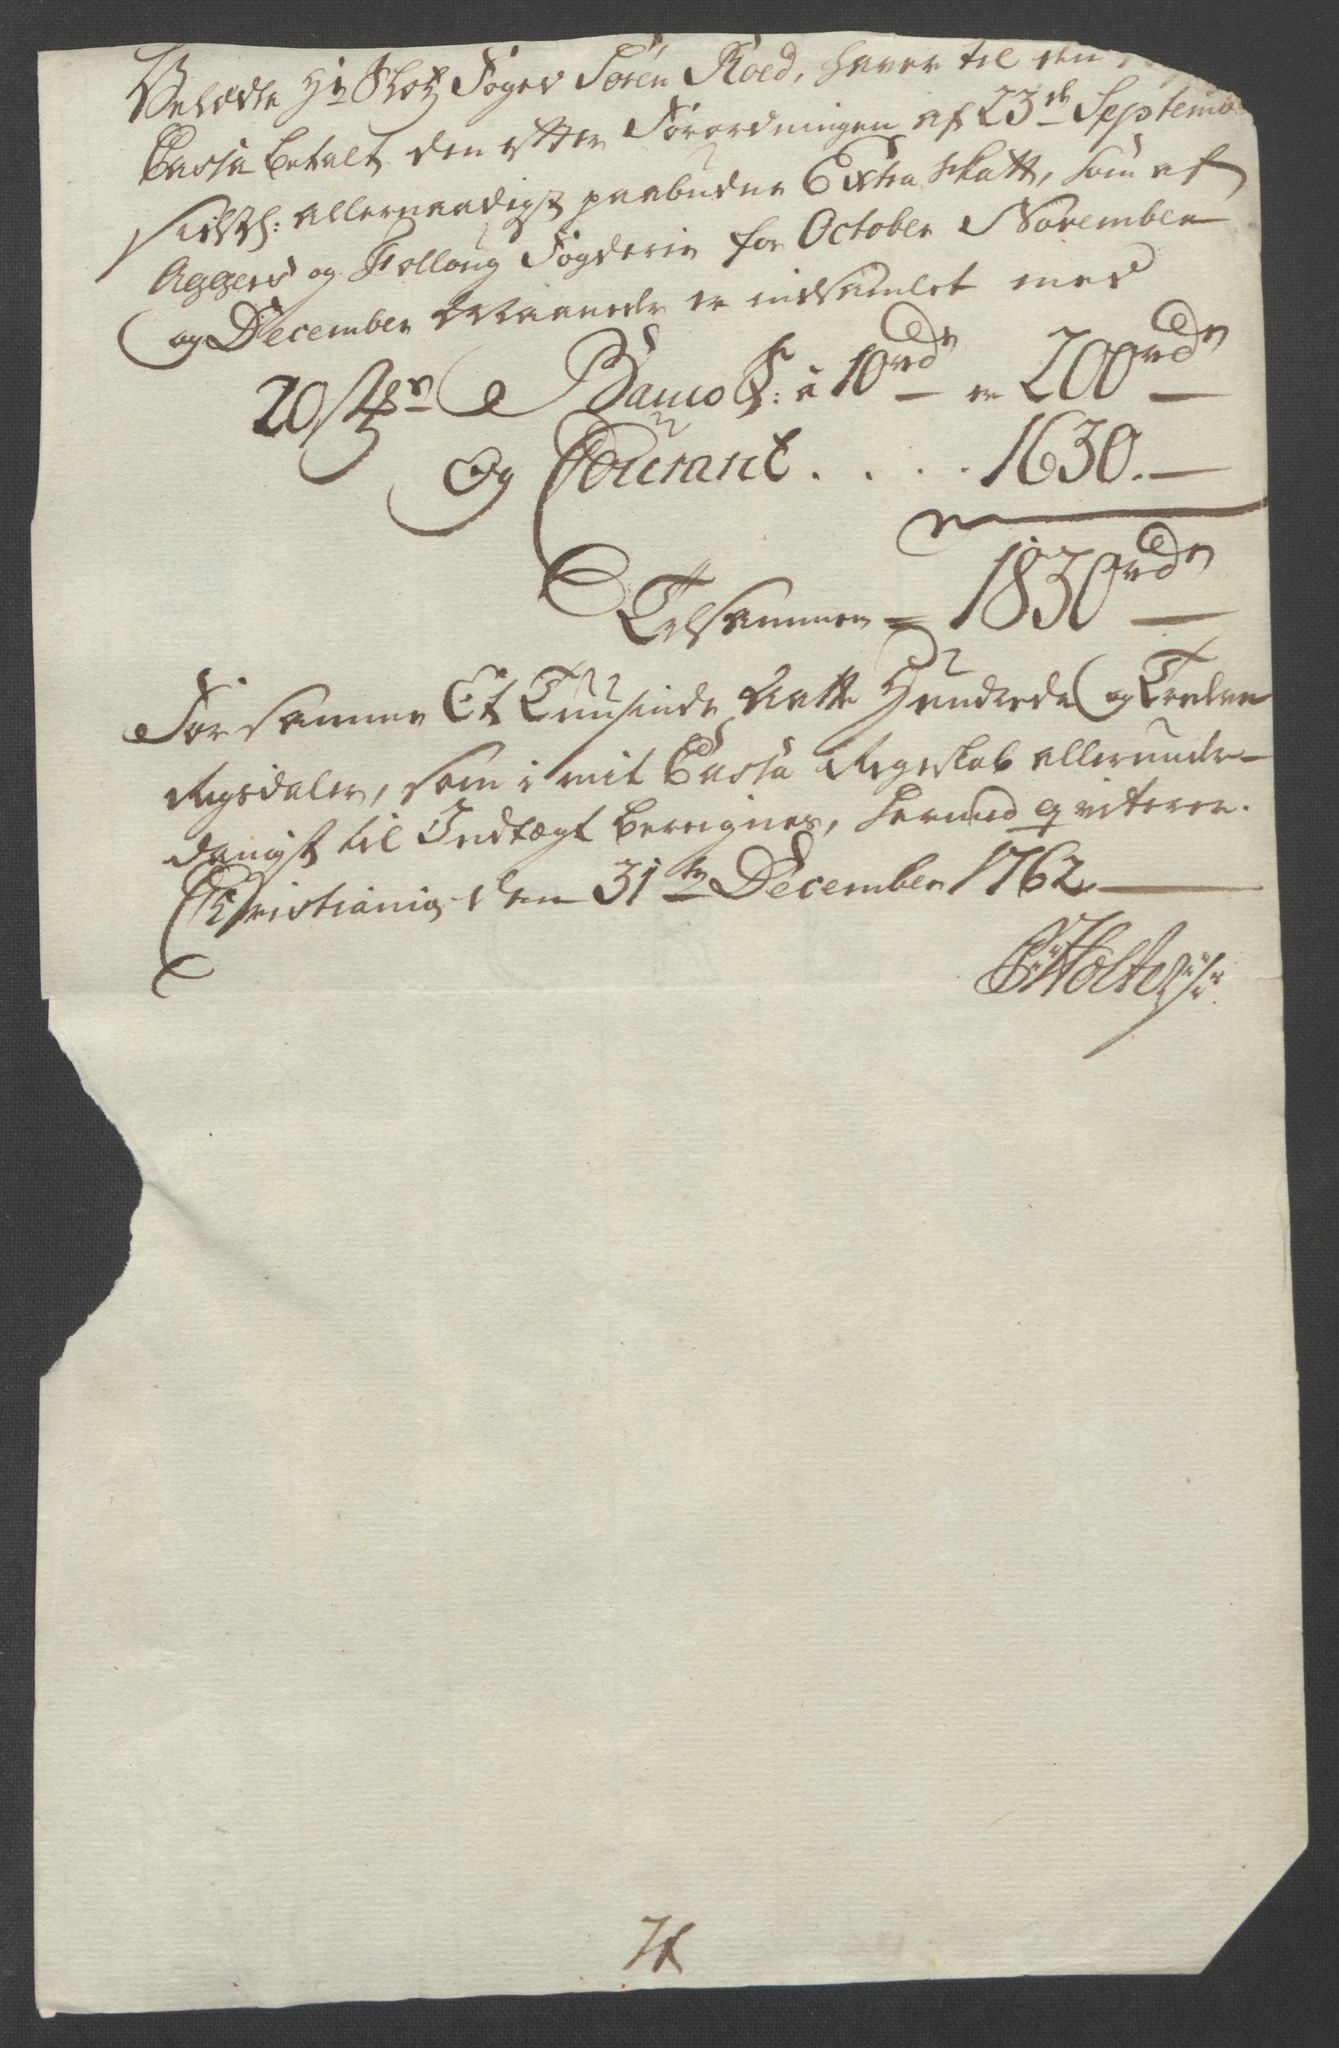 Velædle Hr Slotz Foged Sören Roed, haver til den
Cassa betalt den efter Forordningen af 23de Septemb
sidstl: allernaadigst paabudne Extra Skatt, som af
Aggers og Folloug Fogderie for October November
og December Maaneder er indsamlet med
20 Banco S: a 10rdr er 200rdr
Og Courant . . . . 1630.
Tilsammen = 1830rdr
For samme Et Tuusinde Aatte Hundrede og Tredve
Rigsdaler, som i mit Cassa Regnskab allerunder-
danigst til Indtægt beregnes, herved qviterer.
Christiania den 31te December 1762.
Holter